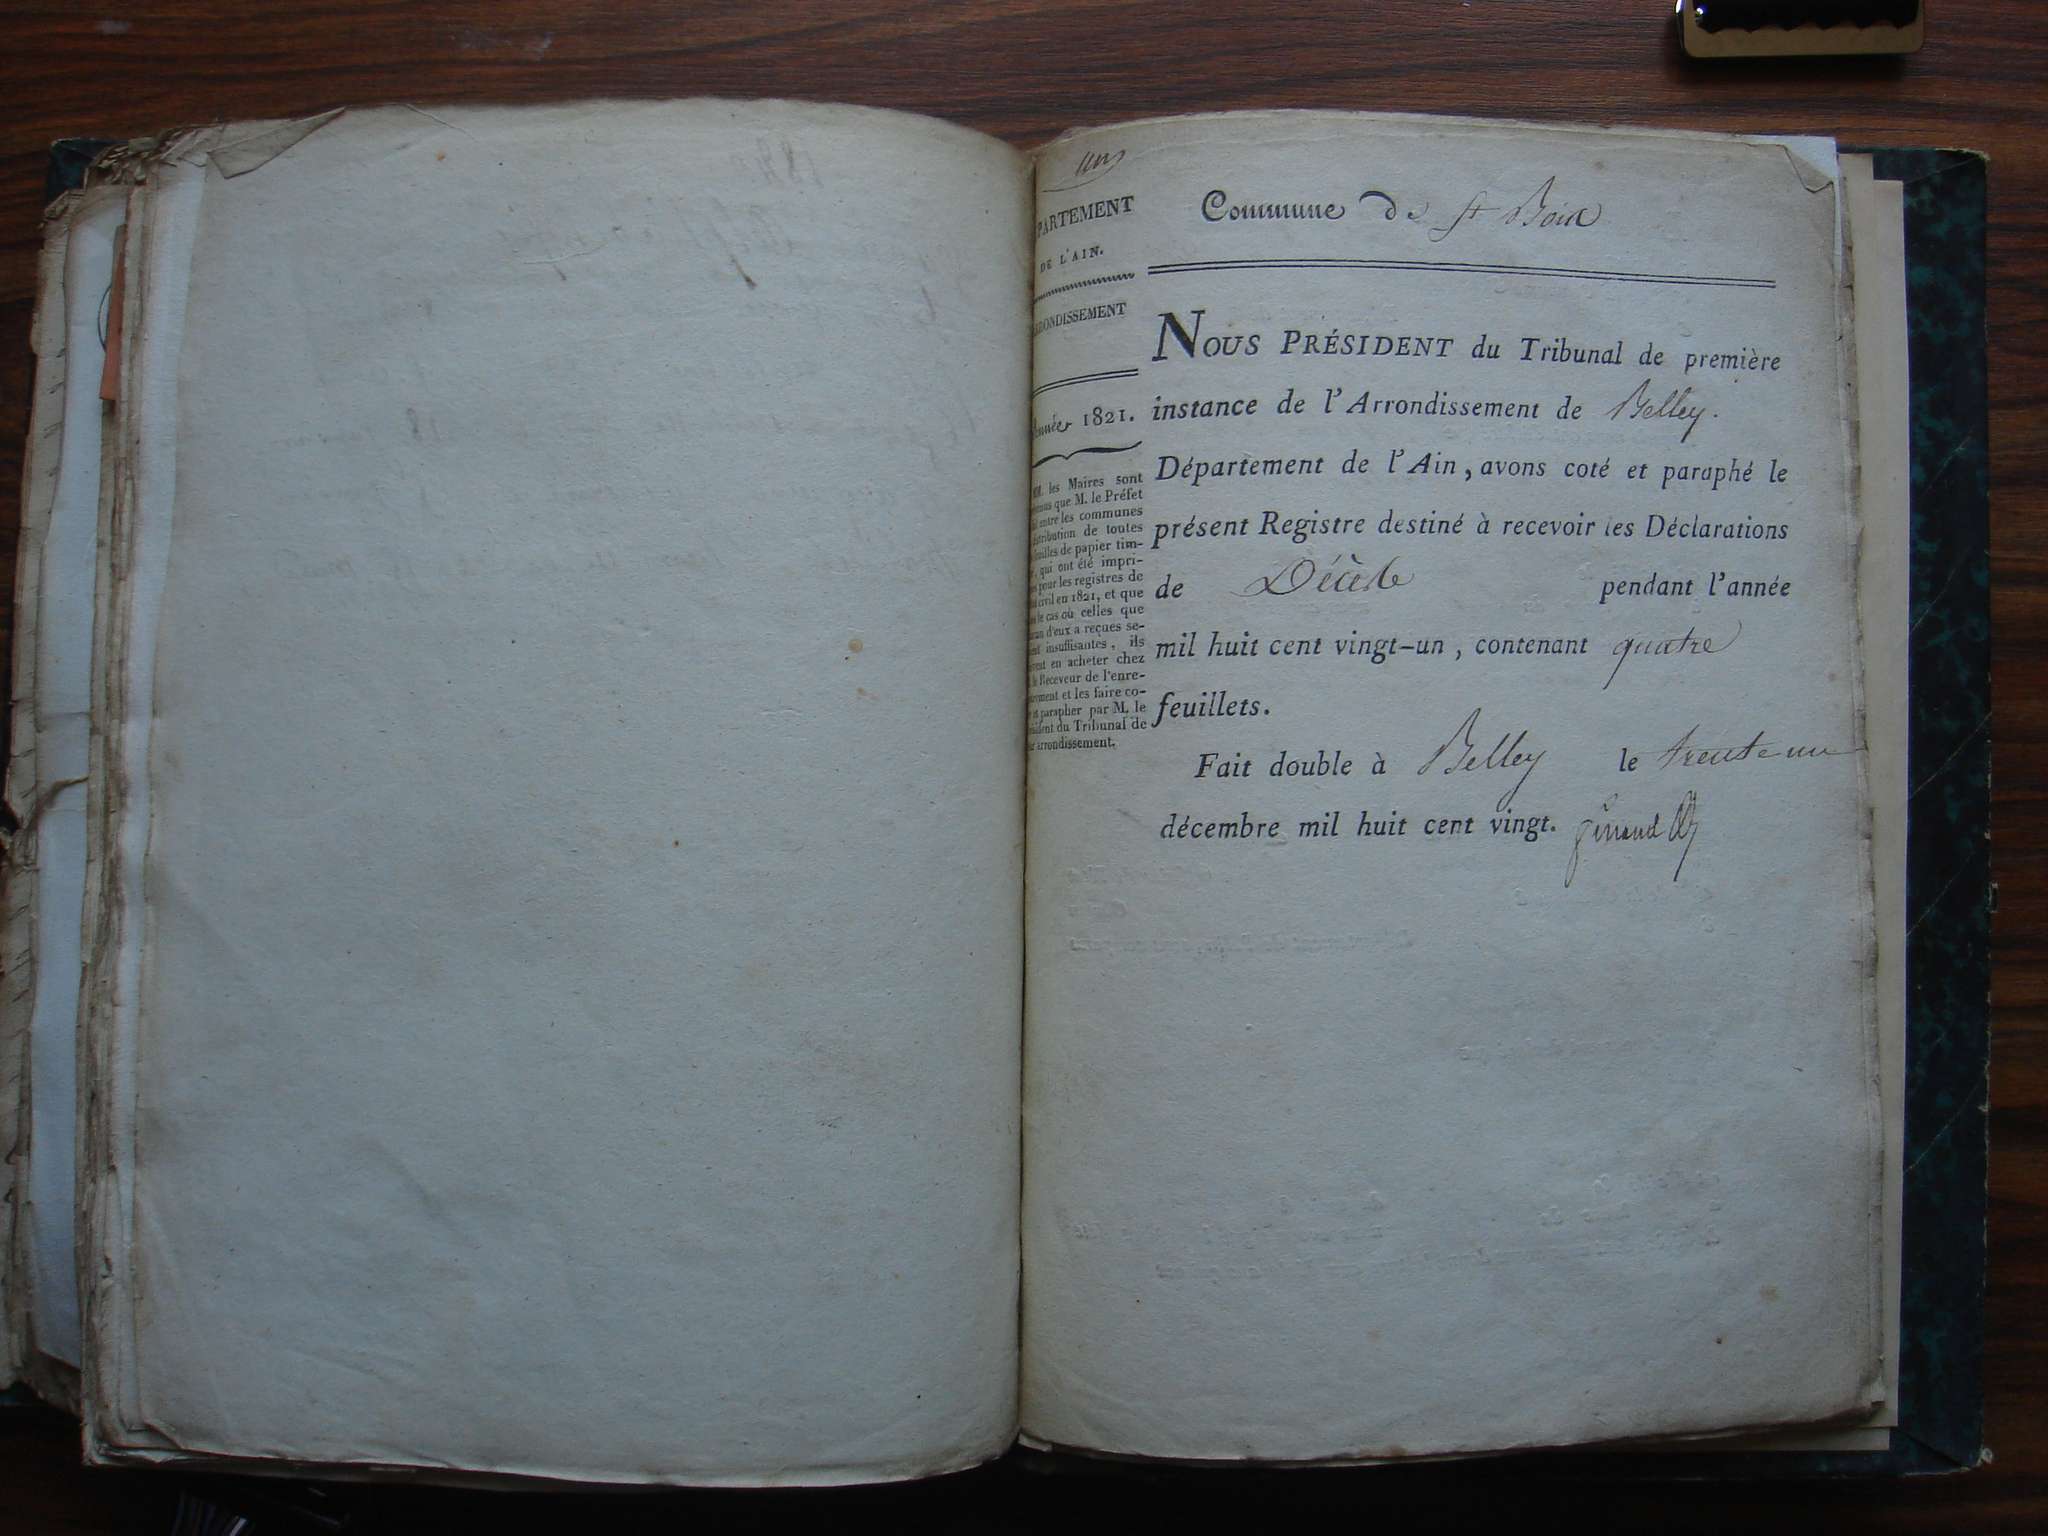 un
PARTEMENT
DE L'AIN.
RONDISSEMENT
Année 1821.
MM. les Maires sont
que M. le Préfet
entre les communes
distribution de toutes
feuilles de papier tim-
, qui ont été impri-
pour les registres de
civil en 1821, et que
le cas où celles que
d'eux a reçues se-
insuffisantes, ils
en acheter chez
le Receveur de l'enre-
ment et les faire co-
et parapher par M. le
du Tribunal de
arrondissement.
Commune de St Boix
NOUS PRÉSIDENT du Tribunal de première
instance de l'Arrondissement de Belley.
Département de l'Ain, avons coté et paraphé le
présent Registre destiné à recevoir les Déclarations
de Décès pendant l'année
mil huit cent vingt-un, contenant quatre
feuillets.
Fait double à Belley le trente un
décembre mil huit cent vingt.